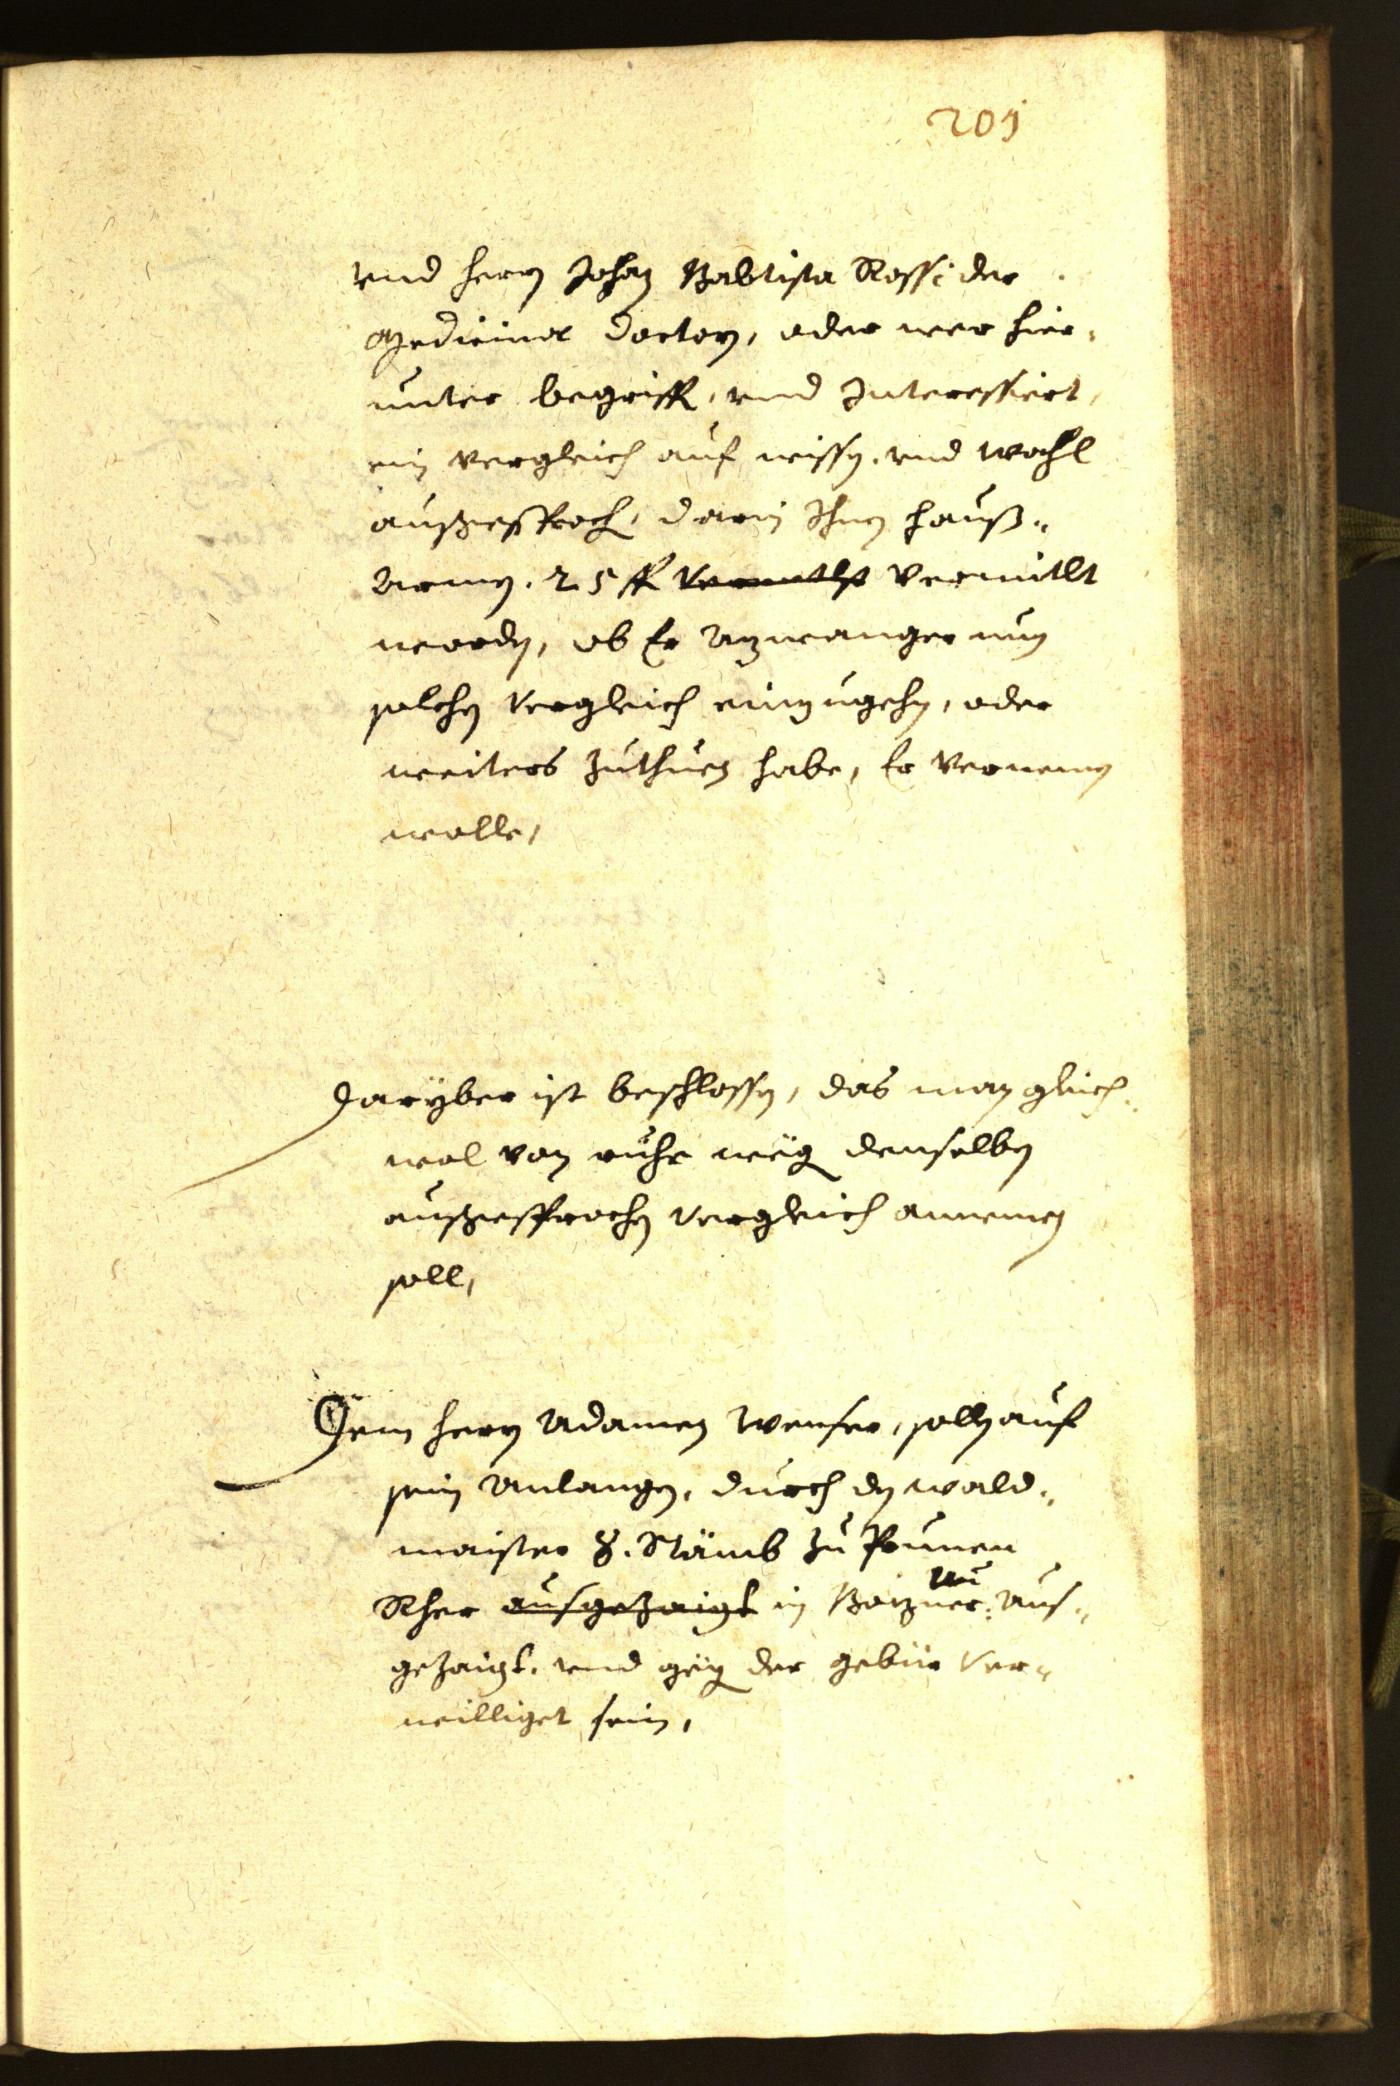 201
vnd herrn Johan Babtista Rossi der
Medicinae Doctorn, oder wer hier„
unter begriffen, vnd Interessiert,
ein vergleich auf wissen, vnd wohl
außgesprochen, darin Ihnen Hauß„
Armen. 25 fl Vermitlst Vermitlt
worden, ob Er Azwanger nun
solchen Vergleich einzugehen, oder
weiters zuthuen habe, Er Vernemen
wolle,
Darÿber ist beschlossen, das man gleich„
wol von ruhe wegen denselben
außgesprochen Vergleich annemen
soll,
Dem herrn Adamen Wenser, sollen auf
sein Anlangen, durch den wald„
maister 8. Stämb zu Prunen
Rher ausgezaigt in Bozner: aus„
gezaigt, vnd gegen der gebür Ver„
williget sein,